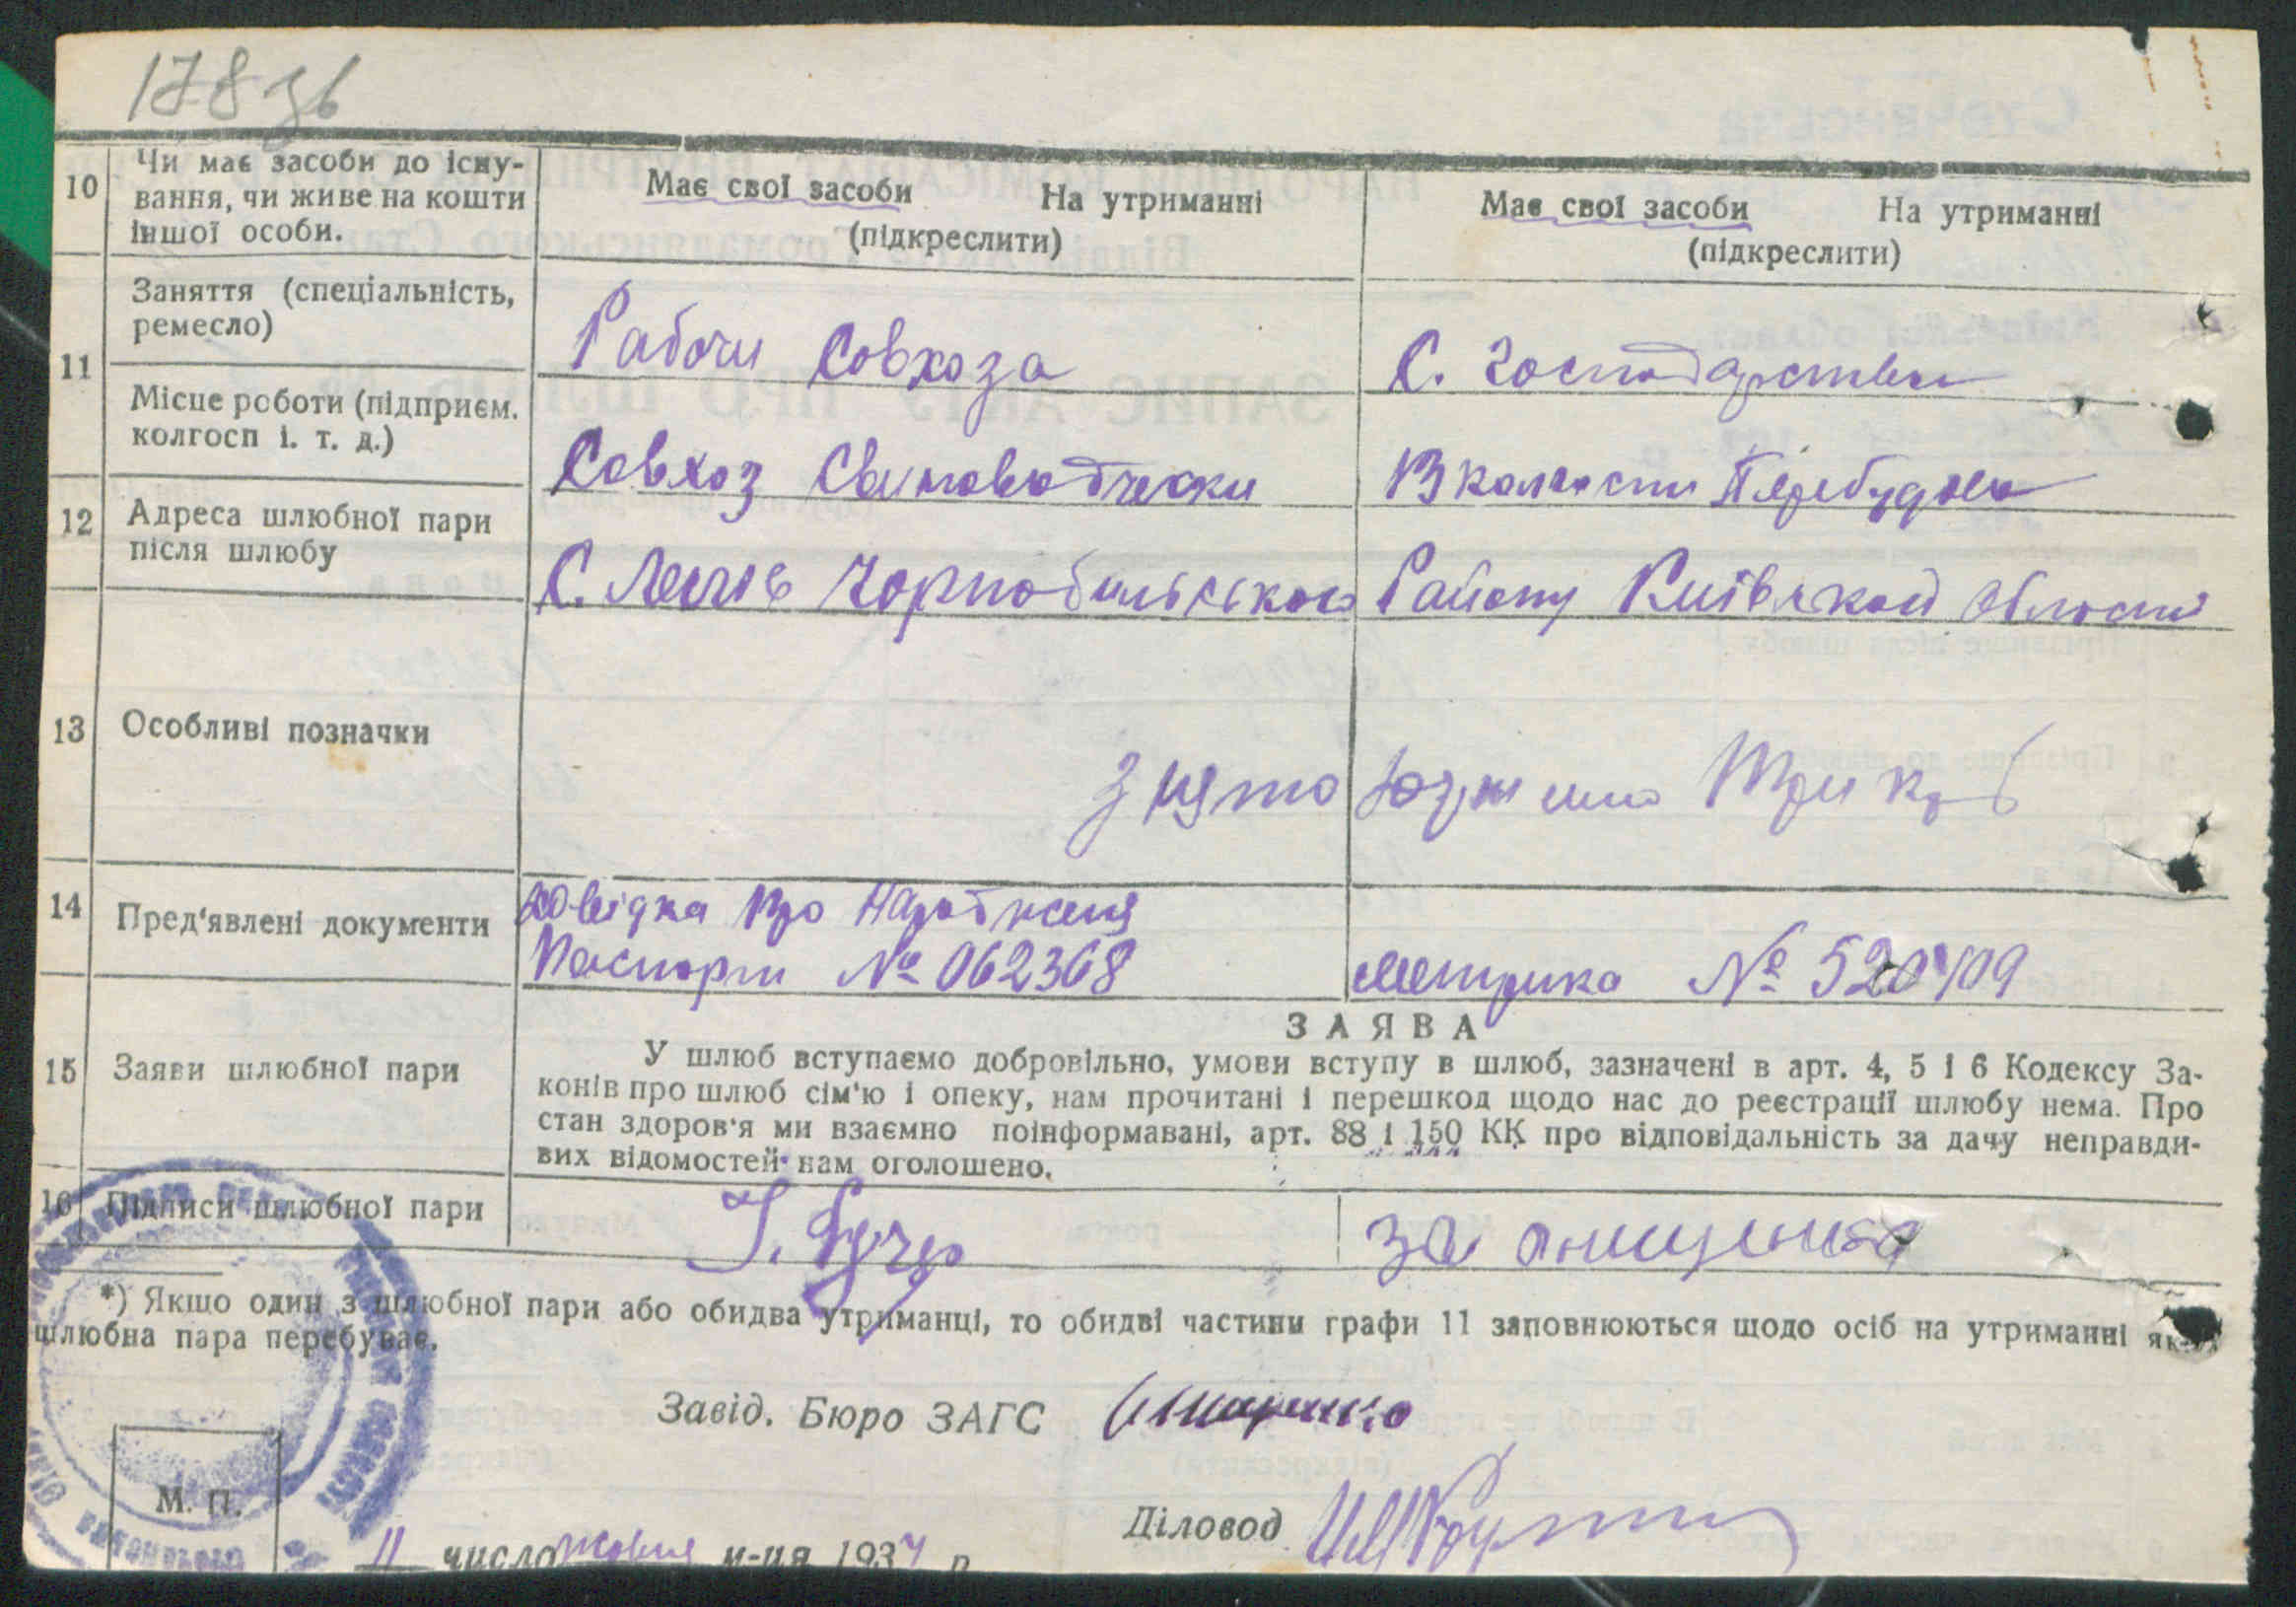 178 зв
10
Чи має засоби до існу-
вання, чи живе на кошти
іншої особи.
Має свої засоби На утриманні
(підкреслити)
Має свої засоби На утриманні
(підкреслити)
11
Заняття (спеціальність,
ремесло)
Рабочи Совхоза
С. Господарства
Місце роботи (підприєм.
колгосп і. т. д.)
Совхоз Свиноводчески
В колгоспи Перебудова
12
Адреса шлюбної пари
після шлюбу
С. Чорнобильського Району Київской Области
13
Особливі позначки
Знято
14
Пред'явлені документи
Довідка про Народженя
Паспорт № 062368
Метрика № 520409
15
Заяви шлюбної пари
ЗАЯВА
У шлюб вступаємо добровільно, умови вступу в шлюб, зазначені в арт. 4, 5 і 6 Кодексу За-
конів про шлюб сім'ю і опеку, нам прочитані і перешкод щодо нас до реєстрації шлюбу нема. Про
стан здоров'я ми взаємно поінформавані, арт. 88 і 150 КК про відповідальність за дачу неправди-
вих відомостей нам оголошено.
16
Підписи шлюбної пари
за
*) Якщо один з шлюбної пари або обидва утриманці, то обидві частини графи 11 заповнюються щодо осіб на утриманні яких
шлюбна пара перебуває.
Завід. Бюро ЗАГС
М. П.
Діловод
11 число жовтня м-ця 1937 р.